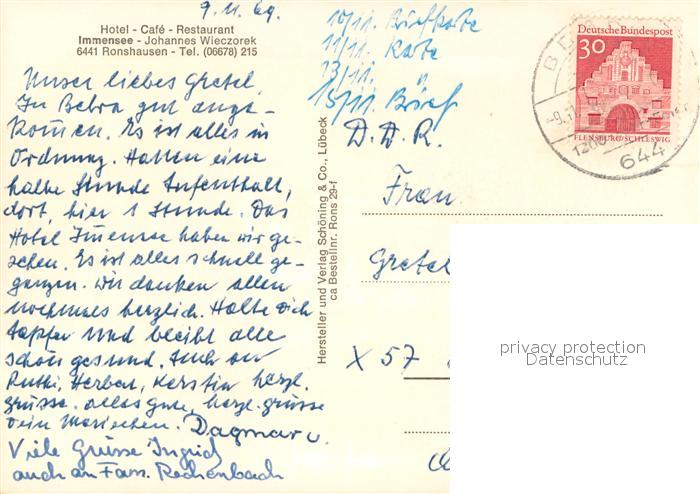 9.11.69
Hotel - Café - Restaurant
Immensee - Johannes Wieczorek
6441 Ronshausen - Tel. (06678) 215
Unser liebes Gretel,
In Bebra gut ange-
kommen. Es ist alles in
Ordnung. Hatten eine
halbe Stunde Aufenthalt,
dort, hier 1 Stunde. Das
Hotel Immensee haben wir ge-
sehen. Es ist alles schnell ge-
gangen. Wir danken allen
nochmals herzlich. Halte Dich
tapfer und bleibt alle
schön gesund. Auch an
Ruthi, Herbert, Kerstin herzl.
Grüsse. Alles gute, herzl. Grüsse
Dein Mariechen. Dagmar u.
Viele Grüsse Ingrid
auch an Fam. Rechenbach
Hersteller und Verlag Schöning & Co., Lübeck
ca Bestellnr. Rons 29-f
10/11. Briefkarte
11/11. Karte
13/11. "
15/11. Brief
D.D.R.
Frau
Gretel
X 57
Deutsche Bundespost
30
FLENSBURG/SCHLESWIG
644
privacy protection
Datenschutz